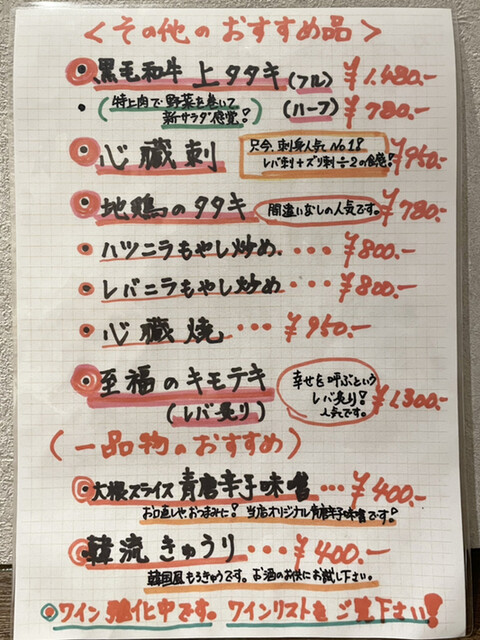 ＜その他のおすすめ品＞
◎黒毛和牛 上タタキ(フル) ¥1.480.-
・(特上肉で野菜を巻いて 新サラダ感覚!) (ハーフ) ¥780.-
◎心臓刺 只今、刺身人気No.1!! レバ刺+ズリ刺÷2の食感! ¥950.-
◎地鶏のタタキ 間違いなしの人気です。 ¥780.-
・ハツニラもやし炒め・・・¥800.-
・レバニラもやし炒め・・・¥800.-
・心臓焼・・・¥950.-
◎至福のキモテキ (レバ炙り) 幸せを呼ぶという レバ炙り! 人気です。 ¥1.300.-
(一品物のおすすめ)
◎大根スライス 青唐辛子味噌…¥400.-
お口直しや、おつまみに! 当店オリジナル青唐辛子味噌です!
◎韓流きゅうり・・・¥400.-
韓国風もろきゅうです。お酒のお供にお試し下さい。
◎ワイン強化中です。ワインリストもご覧下さい!